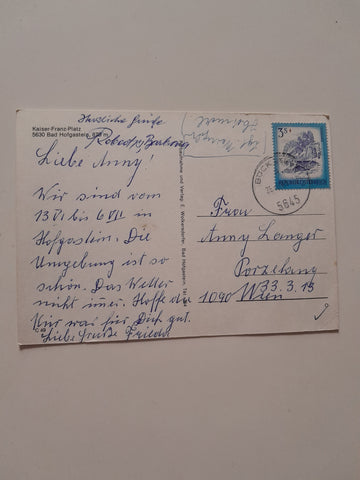 Kaiser-Franz-Platz
5630 Bad Hofgastein, 870 m
Herzliche Grüße
Liebe Anny!
Wir sind vom
13 VI bis 6 VII in
Hofgastein. Die
Umgebung ist so
schön. Das Wetter
nicht immer. Hoffe die
Kur war für Dich gut.
Liebe Grüße Frieda
3 S
REPUBLIK ÖSTERREICH
BÖCK
5645
Frau
Anny Langer
Porzellang
33.3.15
1090 Wien